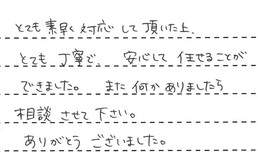 とても 素早く 対応 して 頂いた上、
とても 丁寧で、 安心して 任せることが
できました。 また 何か ありましたら
相談 させて 下さい。
ありがとう ございました。